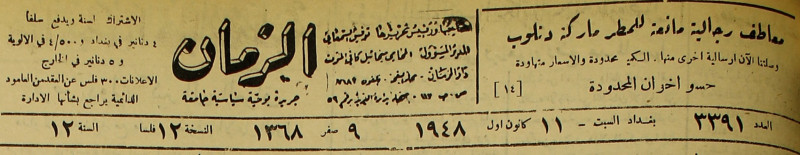 معاطف رجالية مانعة للمطر ماركة دنلوب
وصلتنا الآن ارسالية اخرى منها. الكمية محدودة والاسعار متهاودة
حسو اخوان المحدودة
[١٤]
صاحبها ورئيس تحريرها توفيق السمعاني
المدير المسؤول: المحامي
جريدة يومية سياسية جامعة
الزمان
الاشتراك لسنة ويدفع سلفا
٤ دنانير في بغداد و ٤/٥٠٠ في الالوية
و ٥ دنانير في الخارج
الاعلانات ٣٠٠ فلس عن العقد من العامود
الدائمية يراجع بشأنها الادارة
العدد ٣٣٩١ بغداد السبت - ١١ كانون اول ١٩٤٨ ٩ صفر ١٣٦٨ النسخة ١٢ فلسا السنة ١٢